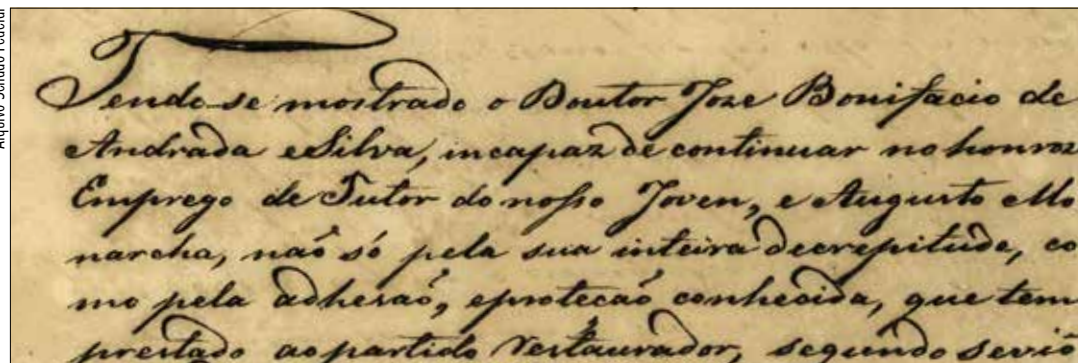 Arquivo Senado Federal
Tendo-se mostrado o Doutor Joze Bonifacio de
Andrada eSilva, incapaz de continuar no honroz
Emprego de Tutor do nosso Joven, e Augusto Mo
narcha, naõ só pela sua inteira decrepitude, co
mo pela adhesaõ, eprotecaõ conhecida, que tem
prestado ao partido restaurador, segundo